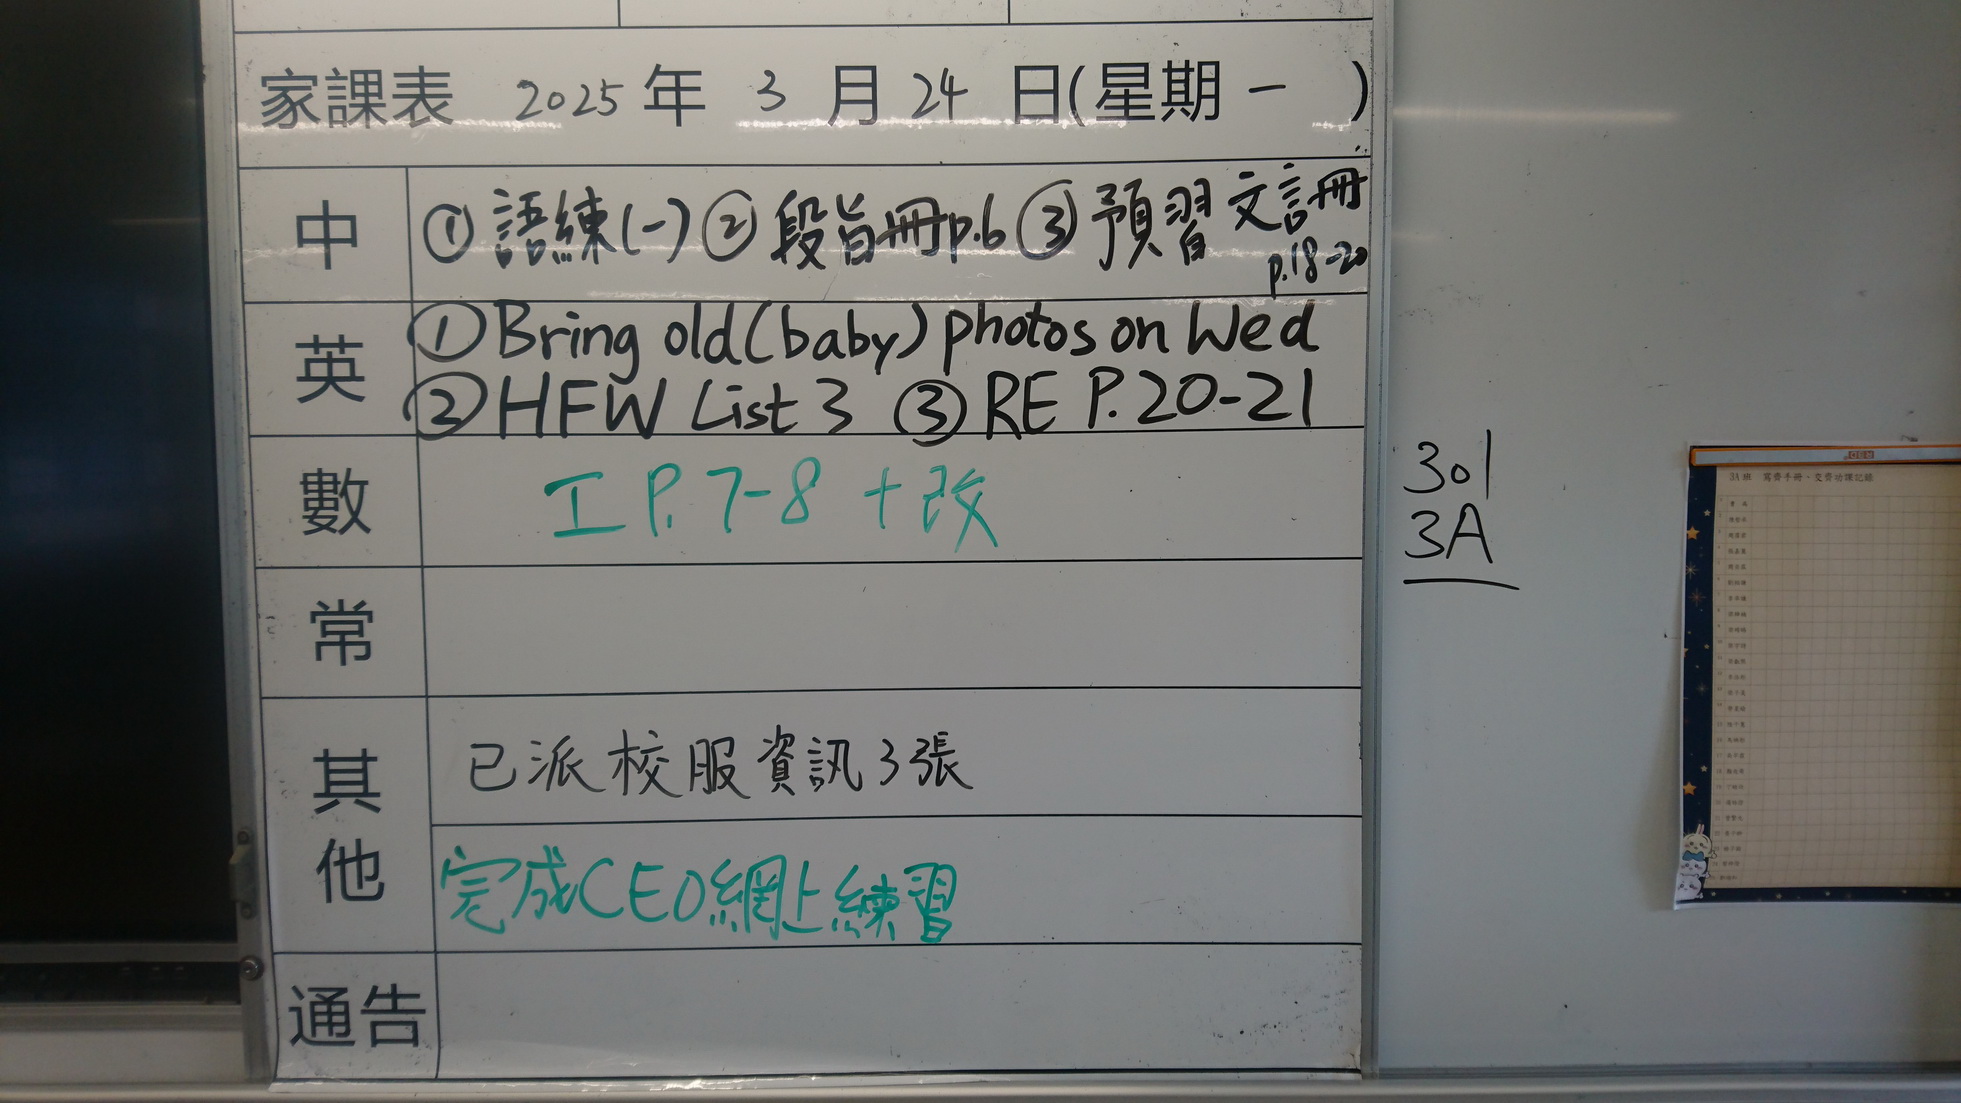 家課表 2025 年 3 月 24 日(星期 一 )
中 ① 語練(一) ② 段旨冊p.6 ③ 預習 文言冊 p.18-20
英 ① Bring old(baby) photos on Wed
② HFW List 3 ③ RE P.20-21
數 工 P.7-8 + 改
常
其他 已派校服資訊3張
完成CEO網上練習
通告
301
3A
3A班 寫齊手冊、交齊功課記錄